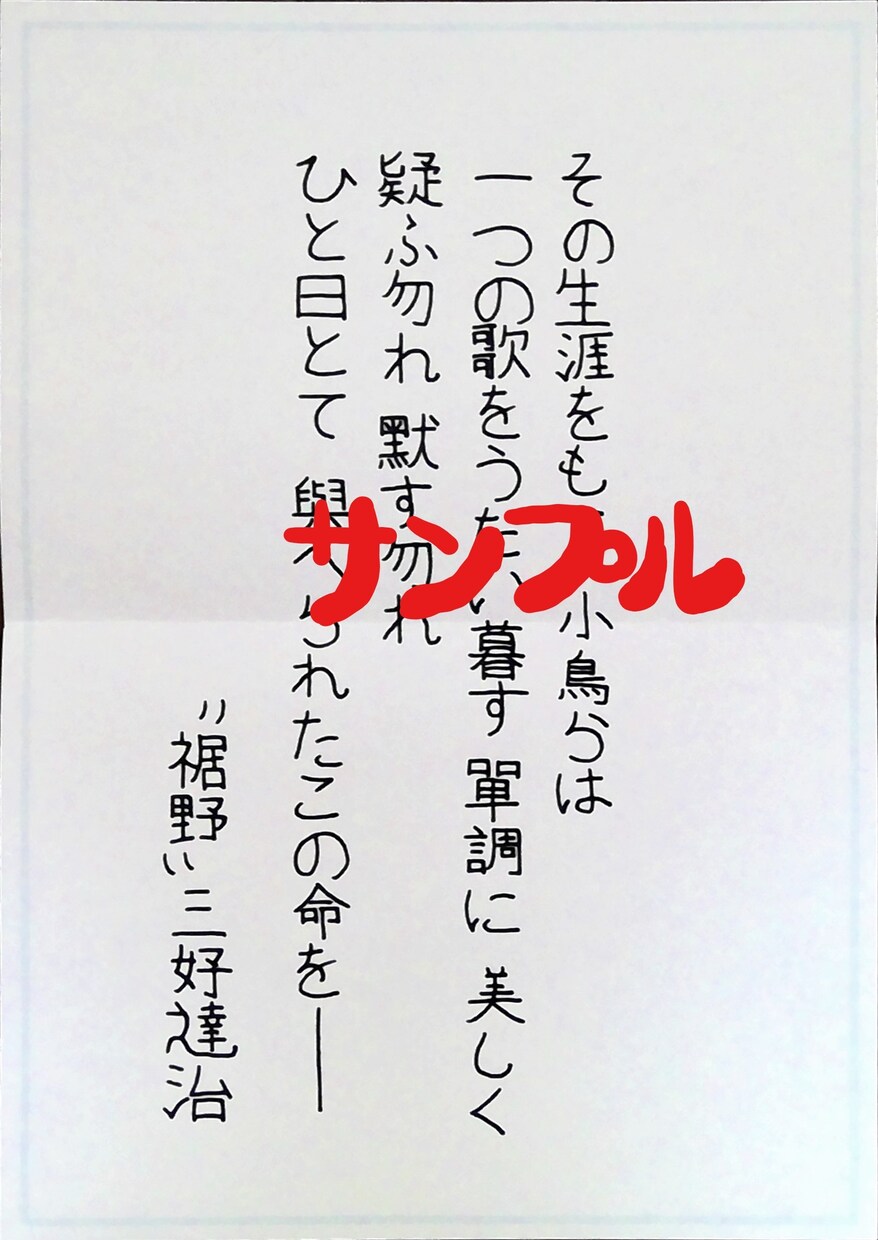 その生涯をも 小鳥らは
一つの歌をうたい暮す 單調に 美しく
疑ふ勿れ 默す勿れ
ひと日とて 與へられたこの命を――
〃裾野〃三好達治
サンプル